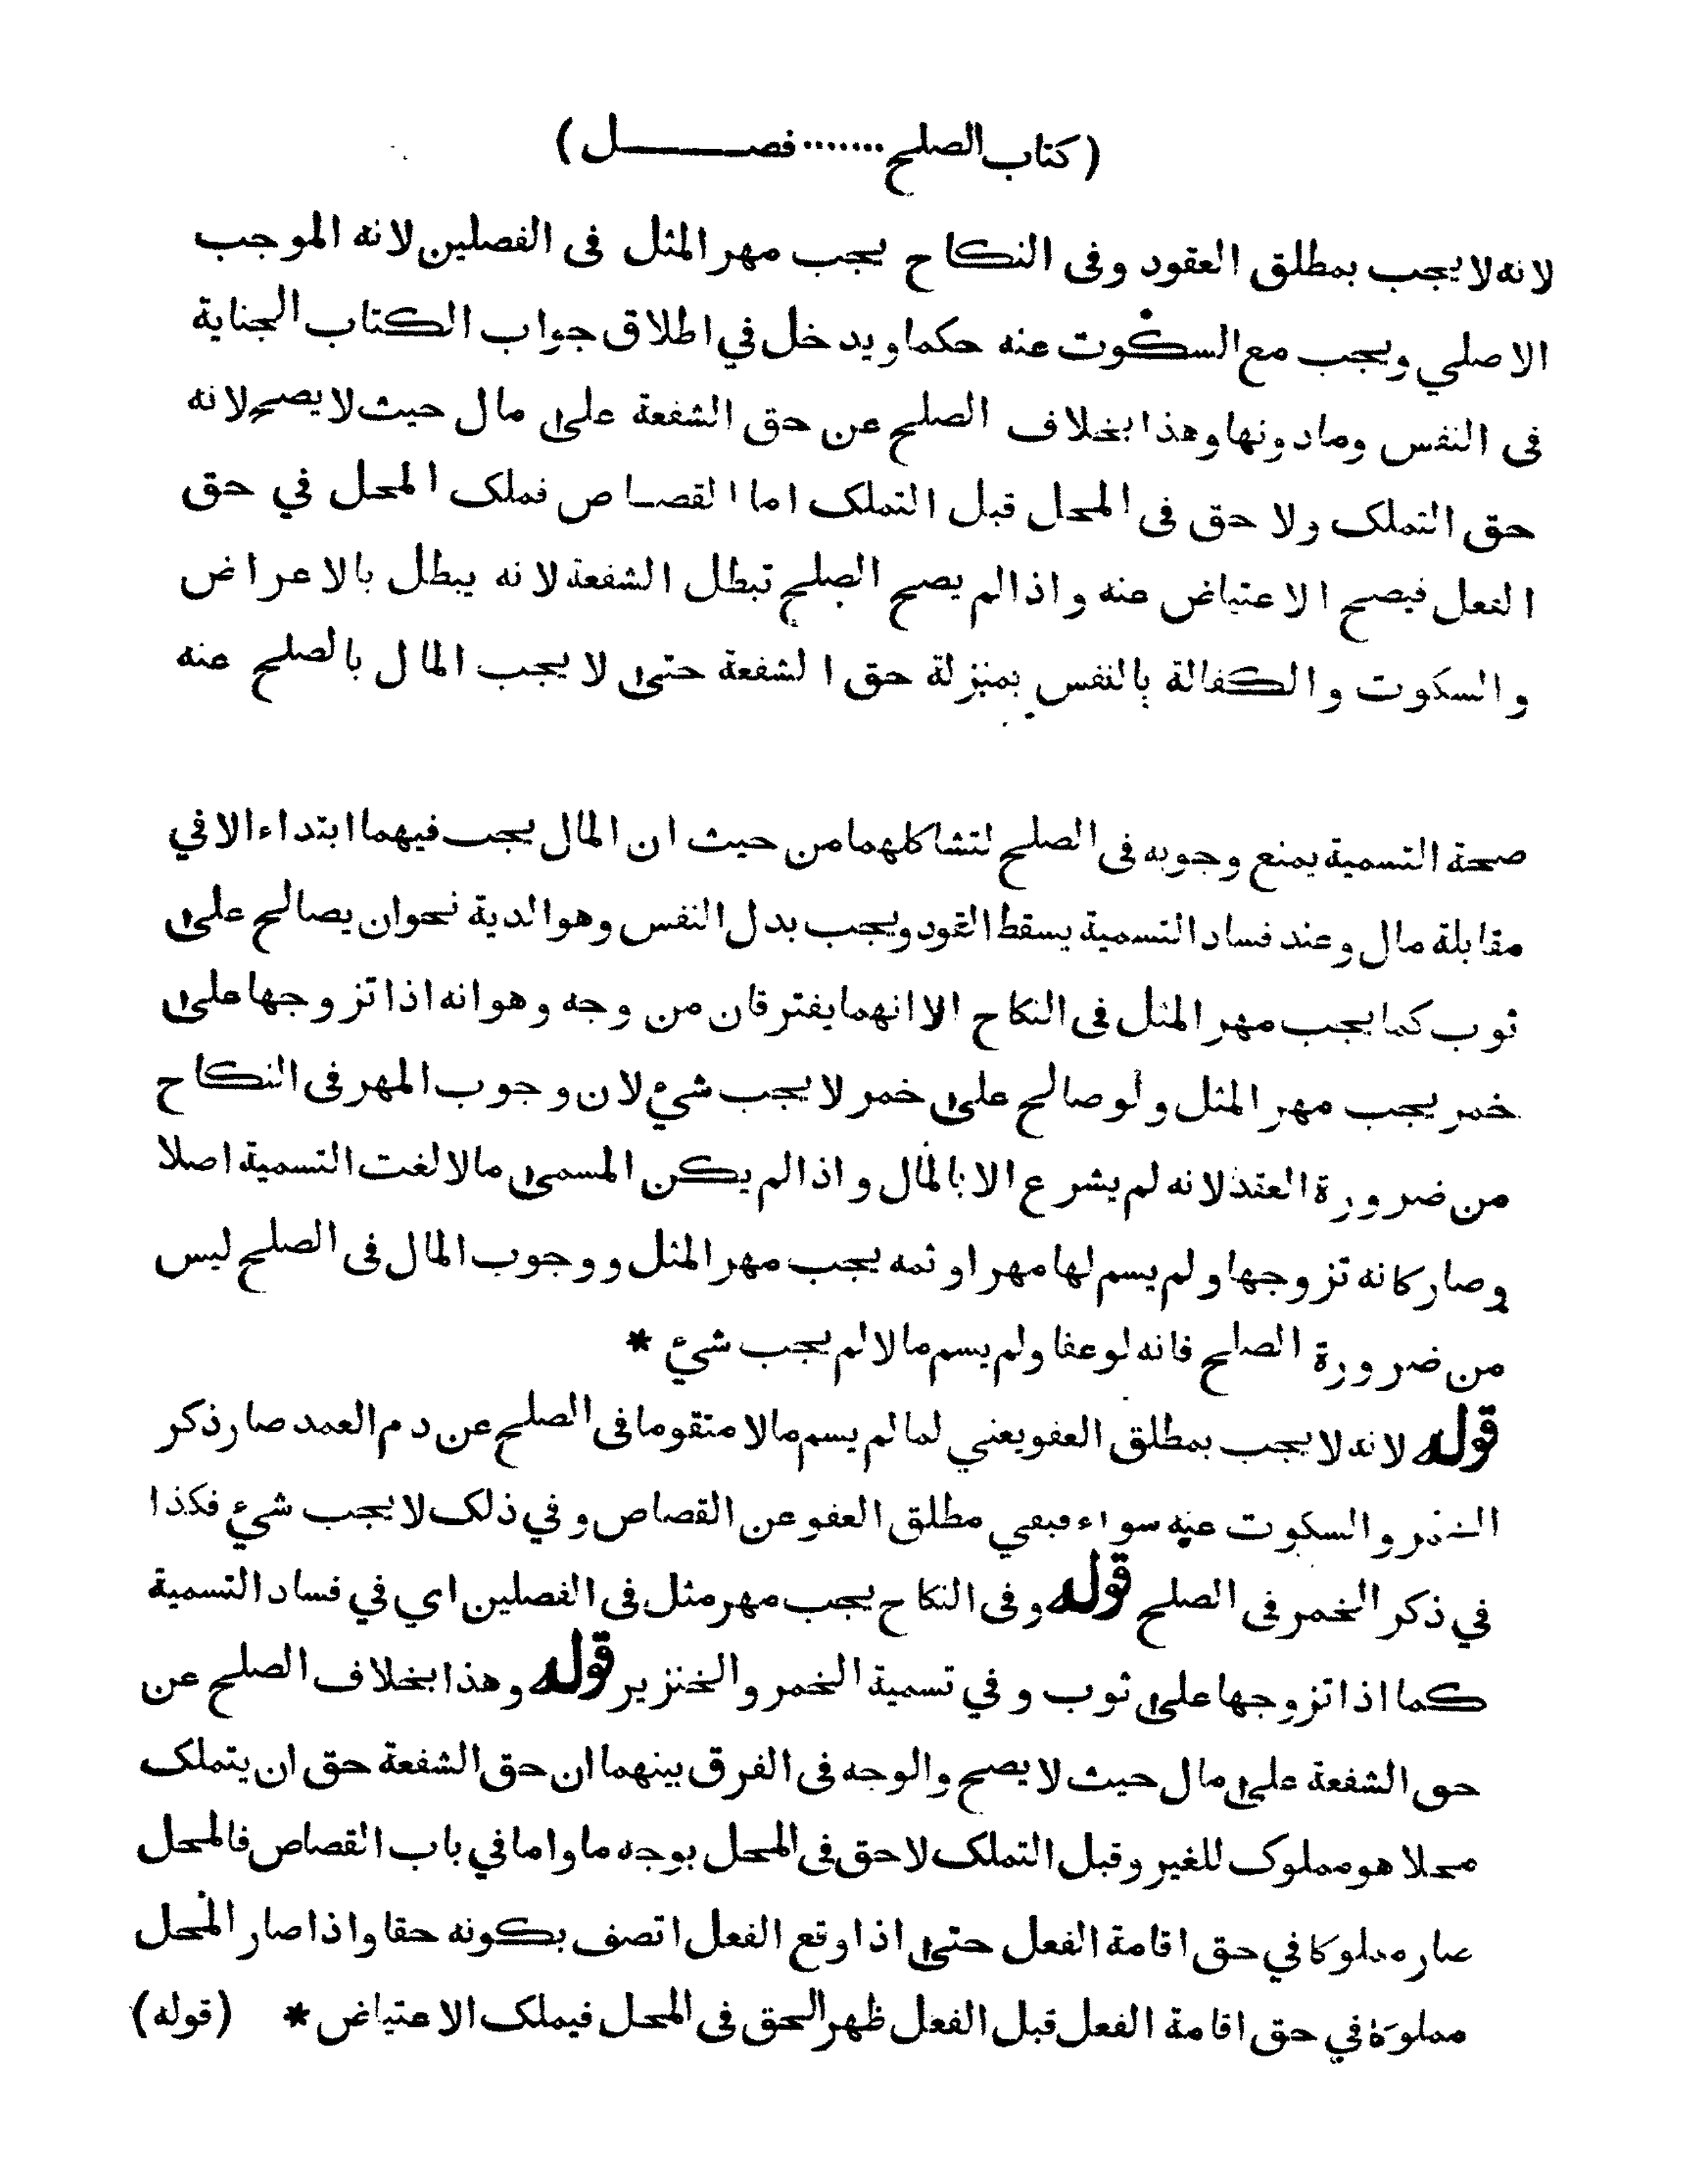 (كتاب الصلح ....... فصــــــل)
لانه لا يجب بمطلق العقود وفى النكاح يجب مهر المثل فى الفصلين لانه الموجب
الاصلي ويجب مع السكوت عنه حكما ويدخل في اطلاق جواب الكتاب الجناية
فى النفس ومادونها وهذا بخلاف الصلح عن حق الشفعة على مال حيث لا يصح لانه
حق التملك ولا حق فى المحل قبل التملك اما القصاص فملك المحل في حق
الفعل فيصح الاعتياض عنه واذا لم يصح الصلح تبطل الشفعة لانه يبطل بالاعراض
والسكوت والكفالة بالنفس بمنزلة حق الشفعة حتى لا يجب المال بالصلح عنه
صحة التسمية يمنع وجوبه فى الصلح لتشاكلهما من حيث ان المال يجب فيهما ابتداء الا في
مقابلة مال وعند فساد التسمية يسقط القود ويجب بدل النفس وهو الدية نحو ان يصالح على
ثوب كما يجب مهر المثل فى النكاح الا انهما يفترقان من وجه وهو انه اذا تزوجها على
خمر يجب مهر المثل ولو صالح على خمر لا يجب شيء لان وجوب المهر فى النكاح
من ضرورة العقد لانه لم يشرع الا بالمال واذا لم يكن المسمى مالا لغت التسمية اصلا
وصار كانه تزوجها ولم يسم لها مهرا وثمه يجب مهر المثل ووجوب المال فى الصلح ليس
من ضرورة الصلح فانه لو عفا ولم يسم مالا لم يجب شيء *
قوله لانه لا يجب بمطلق العفو يعني لما لم يسم مالا متقوما فى الصلح عن دم العمد صار ذكر
الخمر والسكوت عنه سواء فبقي مطلق العفو عن القصاص وفي ذلك لا يجب شيء فكذا
في ذكر الخمر فى الصلح قوله وفى النكاح يجب مهر مثل فى الفصلين اي في فساد التسمية
كما اذا تزوجها على ثوب وفي تسمية الخمر والخنزير قوله وهذا بخلاف الصلح عن
حق الشفعة على مال حيث لا يصح والوجه فى الفرق بينهما ان حق الشفعة حق ان يتملك
محلا هو مملوك للغير وقبل التملك لا حق فى المحل بوجه ما واما في باب القصاص فالمحل
صار مملوكا في حق اقامة الفعل حتى اذا وقع الفعل اتصف بكونه حقا واذا صار المحل
مملوكا في حق اقامة الفعل قبل الفعل ظهر الحق فى المحل فيملك الاعتياض * (قوله)